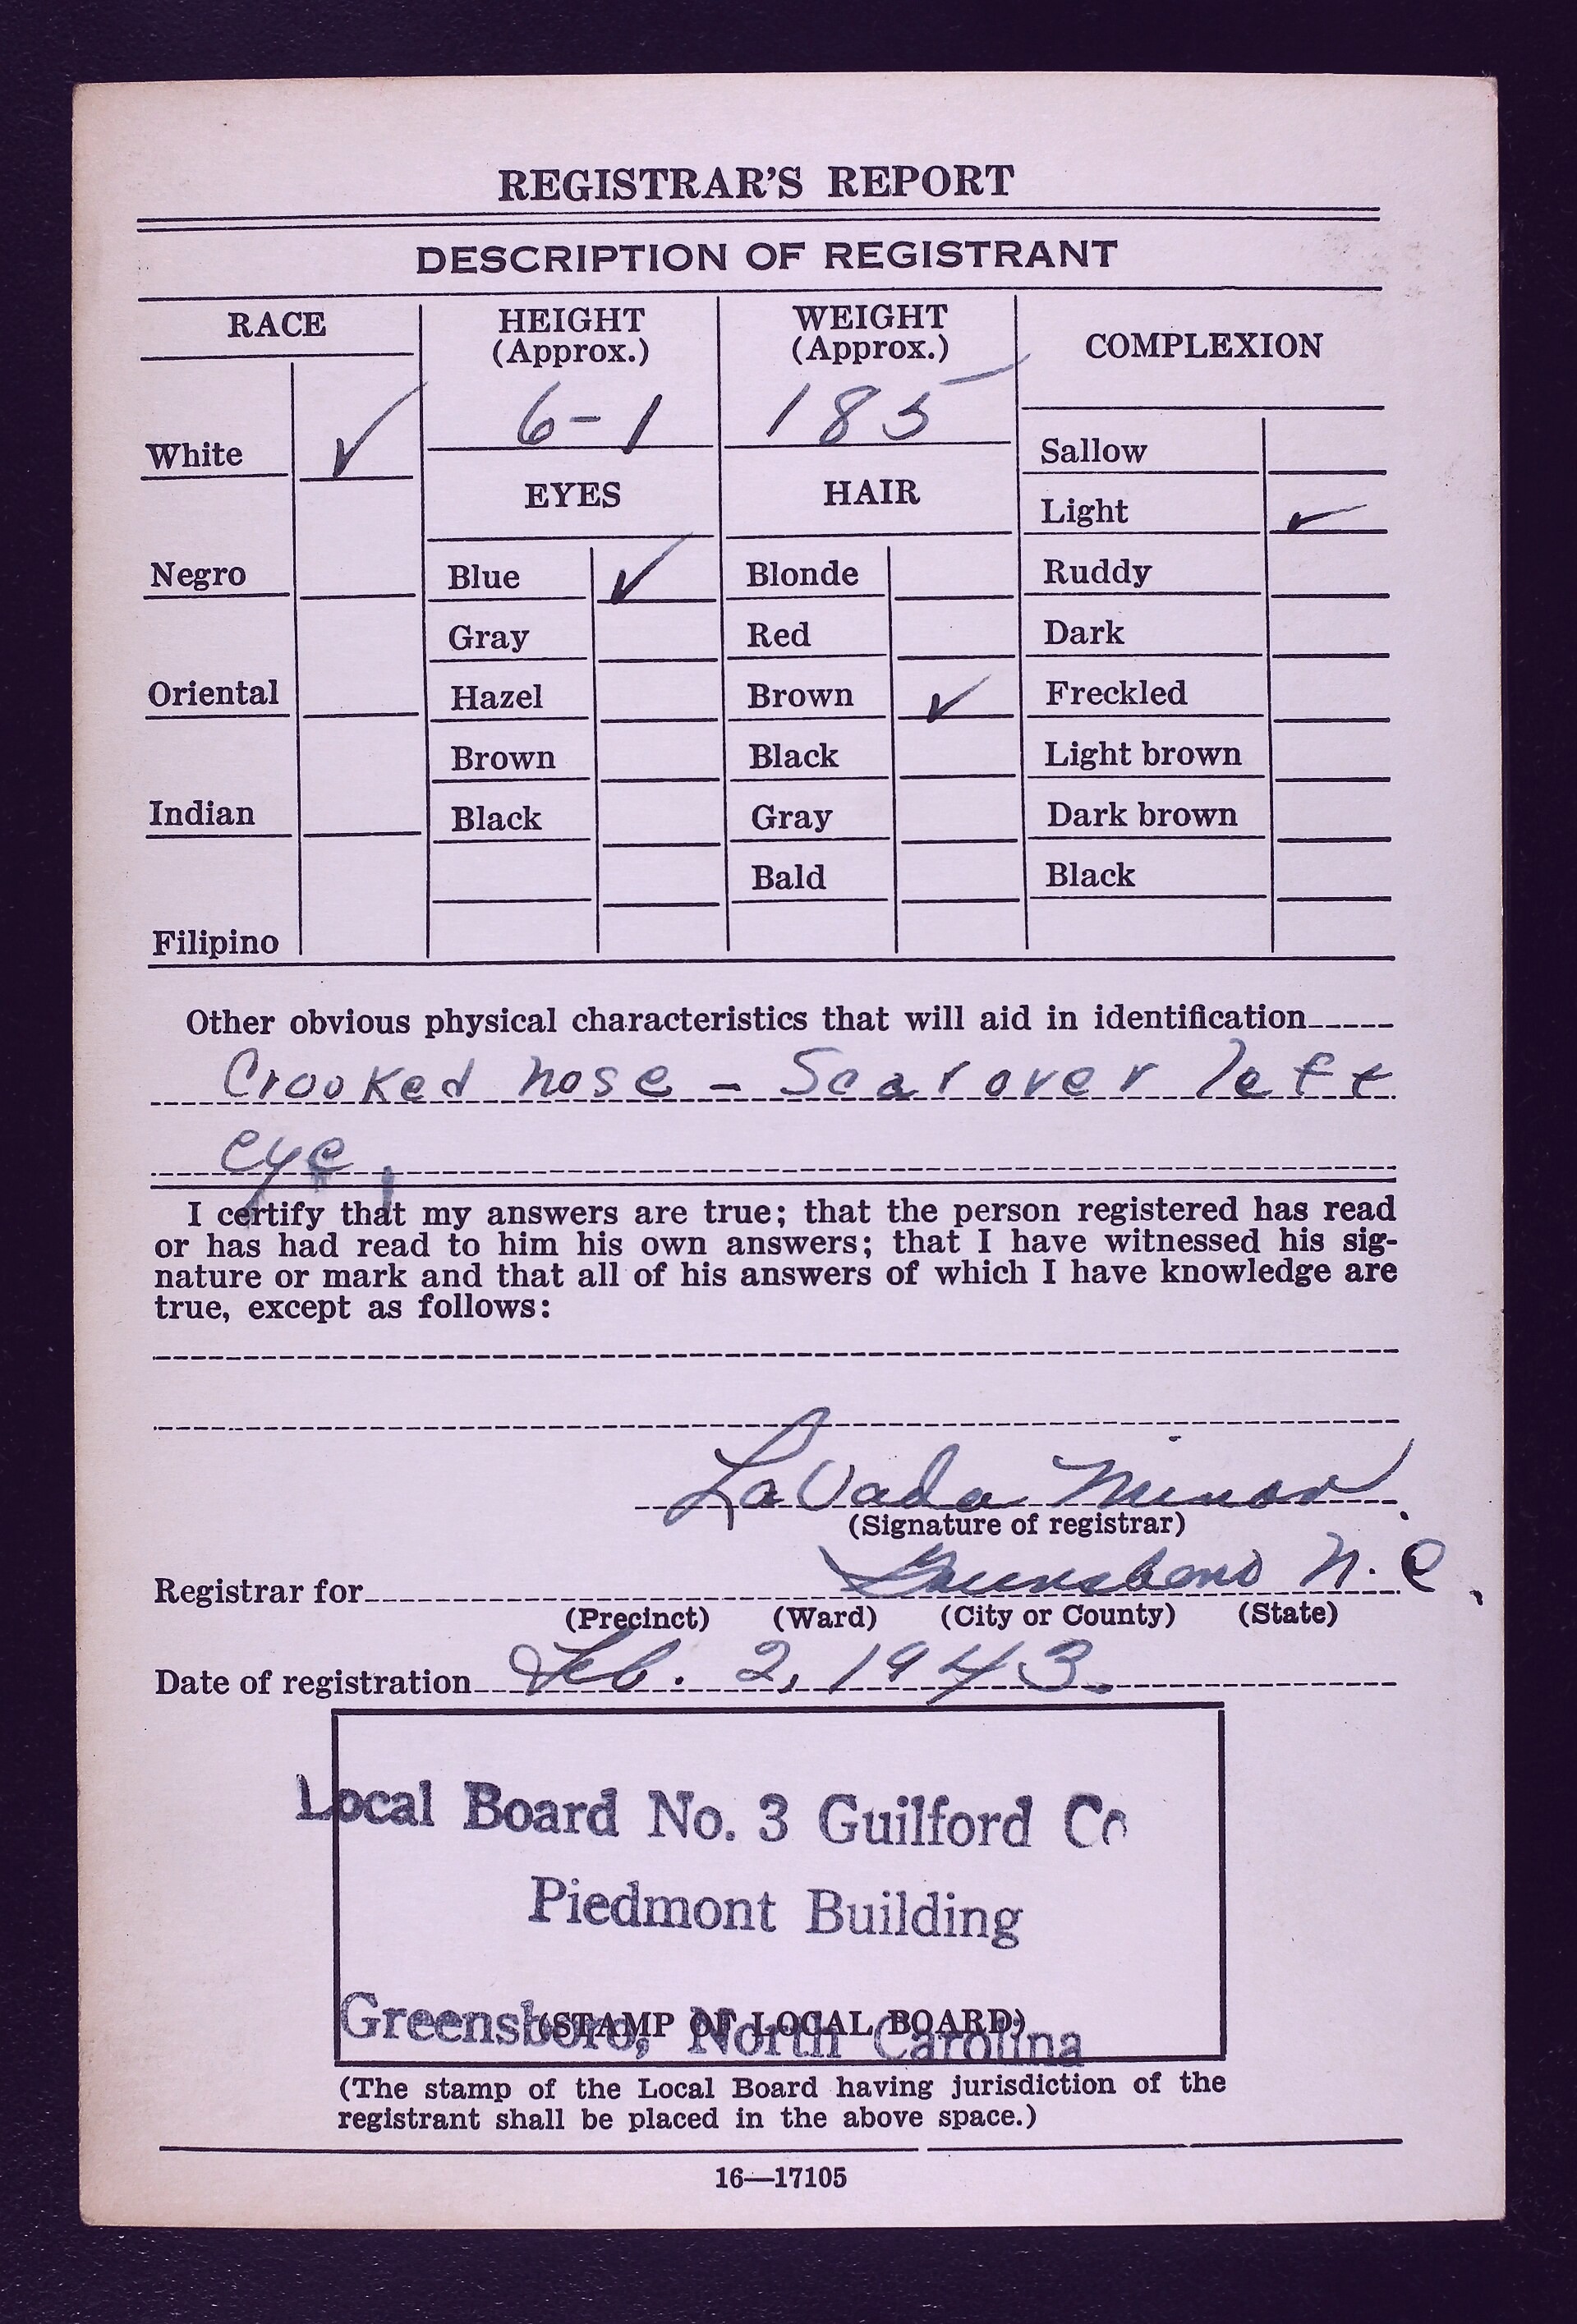 REGISTRAR'S REPORT
DESCRIPTION OF REGISTRANT
RACE
HEIGHT
(Approx.)
WEIGHT
(Approx.)
COMPLEXION
6-1
185
White ✓
Sallow
EYES
HAIR
Light ✓
Negro
Blue ✓
Blonde
Ruddy
Gray
Red
Dark
Oriental
Hazel
Brown ✓
Freckled
Brown
Black
Light brown
Indian
Black
Gray
Dark brown
Bald
Black
Filipino
Other obvious physical characteristics that will aid in identification
Crooked nose - Scar over left
eye,
I certify that my answers are true; that the person registered has read
or has had read to him his own answers; that I have witnessed his sig-
nature or mark and that all of his answers of which I have knowledge are
true, except as follows:
LaVada Minor
(Signature of registrar)
Registrar for Greensboro N.C.
(Precinct) (Ward) (City or County) (State)
Date of registration Feb. 2, 1943.
Local Board No. 3 Guilford Co
Piedmont Building
Greensboro, North Carolina
(STAMP OF LOCAL BOARD)
(The stamp of the Local Board having jurisdiction of the
registrant shall be placed in the above space.)
16—17105